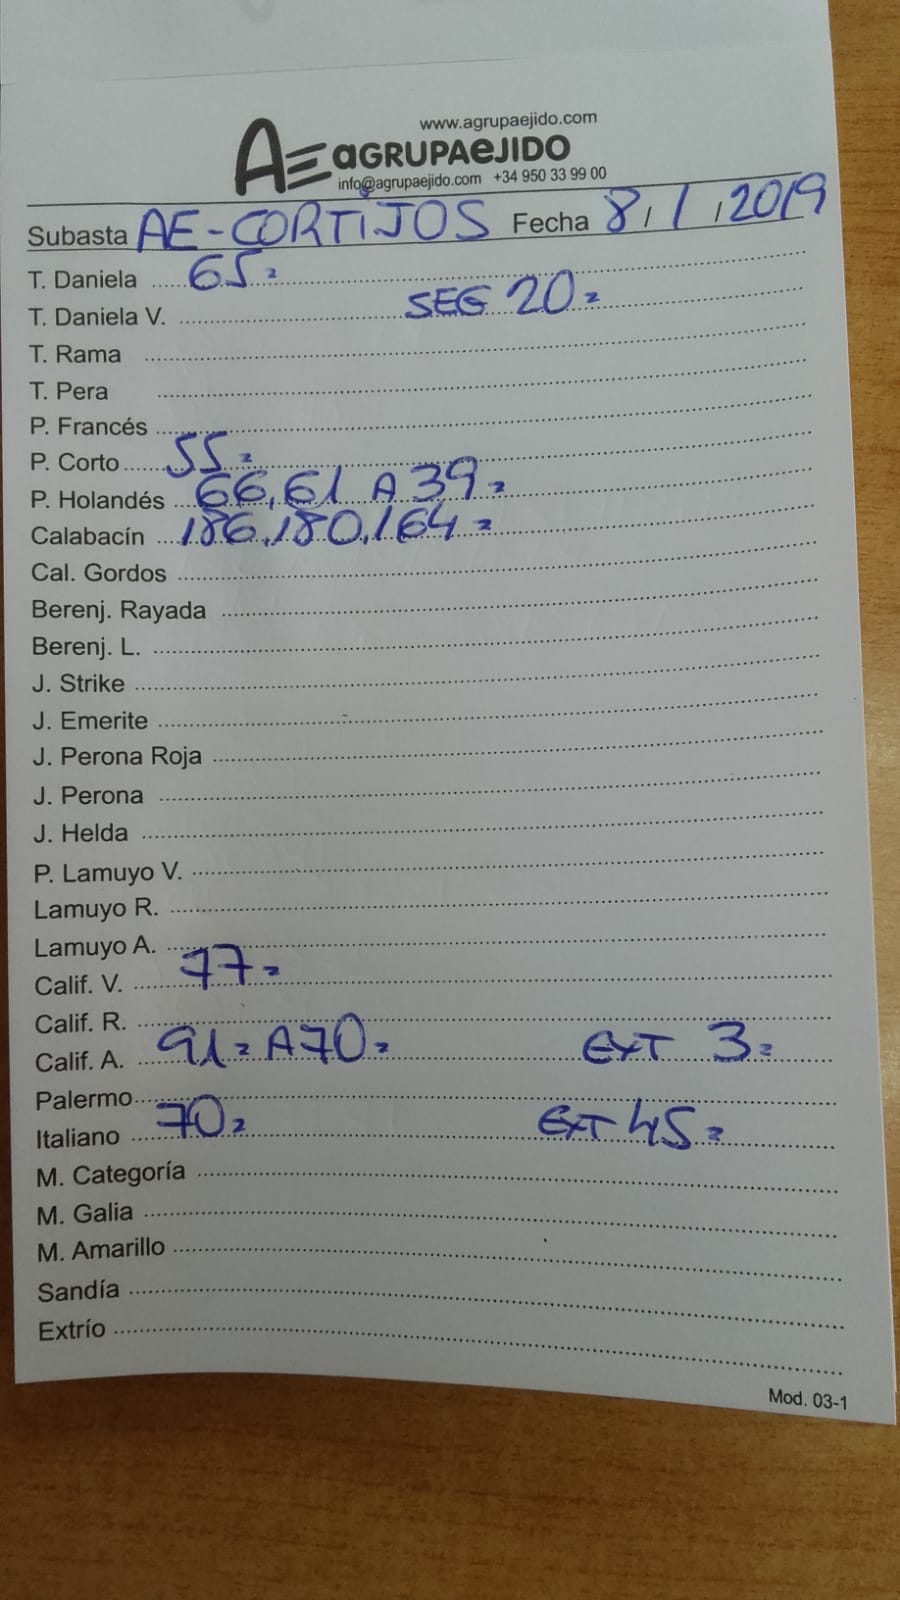 www.agrupaejido.com
AE aGRUPAeJIDO
info@agrupaejido.com +34 950 33 99 00
Subasta AE-CORTIJOS Fecha 8/1/2019
T. Daniela 65=
T. Daniela V. SEG 20=
T. Rama
T. Pera
P. Francés
P. Corto 55=
P. Holandés 66,61 A 39=
Calabacín 186,180,164=
Cal. Gordos
Berenj. Rayada
Berenj. L.
J. Strike
J. Emerite
J. Perona Roja
J. Perona
J. Helda
P. Lamuyo V.
Lamuyo R.
Lamuyo A.
Calif. V. 77=
Calif. R.
Calif. A. 91= A 70= EXT 3=
Palermo
Italiano 70= EXT 45=
M. Categoría
M. Galia
M. Amarillo
Sandía
Extrío
Mod. 03-1